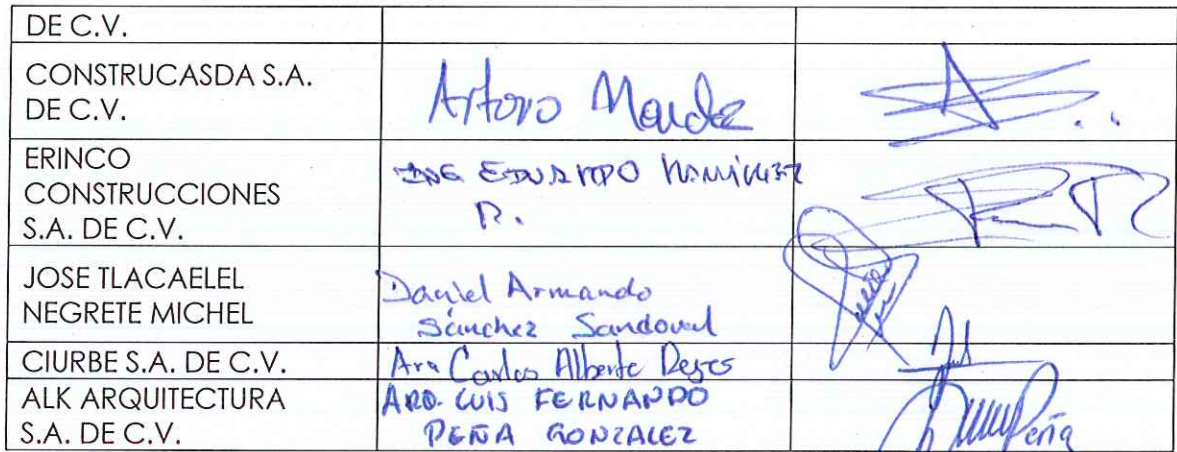 DE C.V.
CONSTRUCASDA S.A.
DE C.V.
Arturo
ERINCO
CONSTRUCCIONES
S.A. DE C.V.
ING EDUARDO RAMIREZ
R.
JOSE TLACAELEL
NEGRETE MICHEL
Daniel Armando
Sánchez Sandoval
CIURBE S.A. DE C.V.
Carlos Alberto Reyes
ALK ARQUITECTURA
S.A. DE C.V.
ARQ. LUIS FERNANDO
PEÑA GONZALEZ
Peña